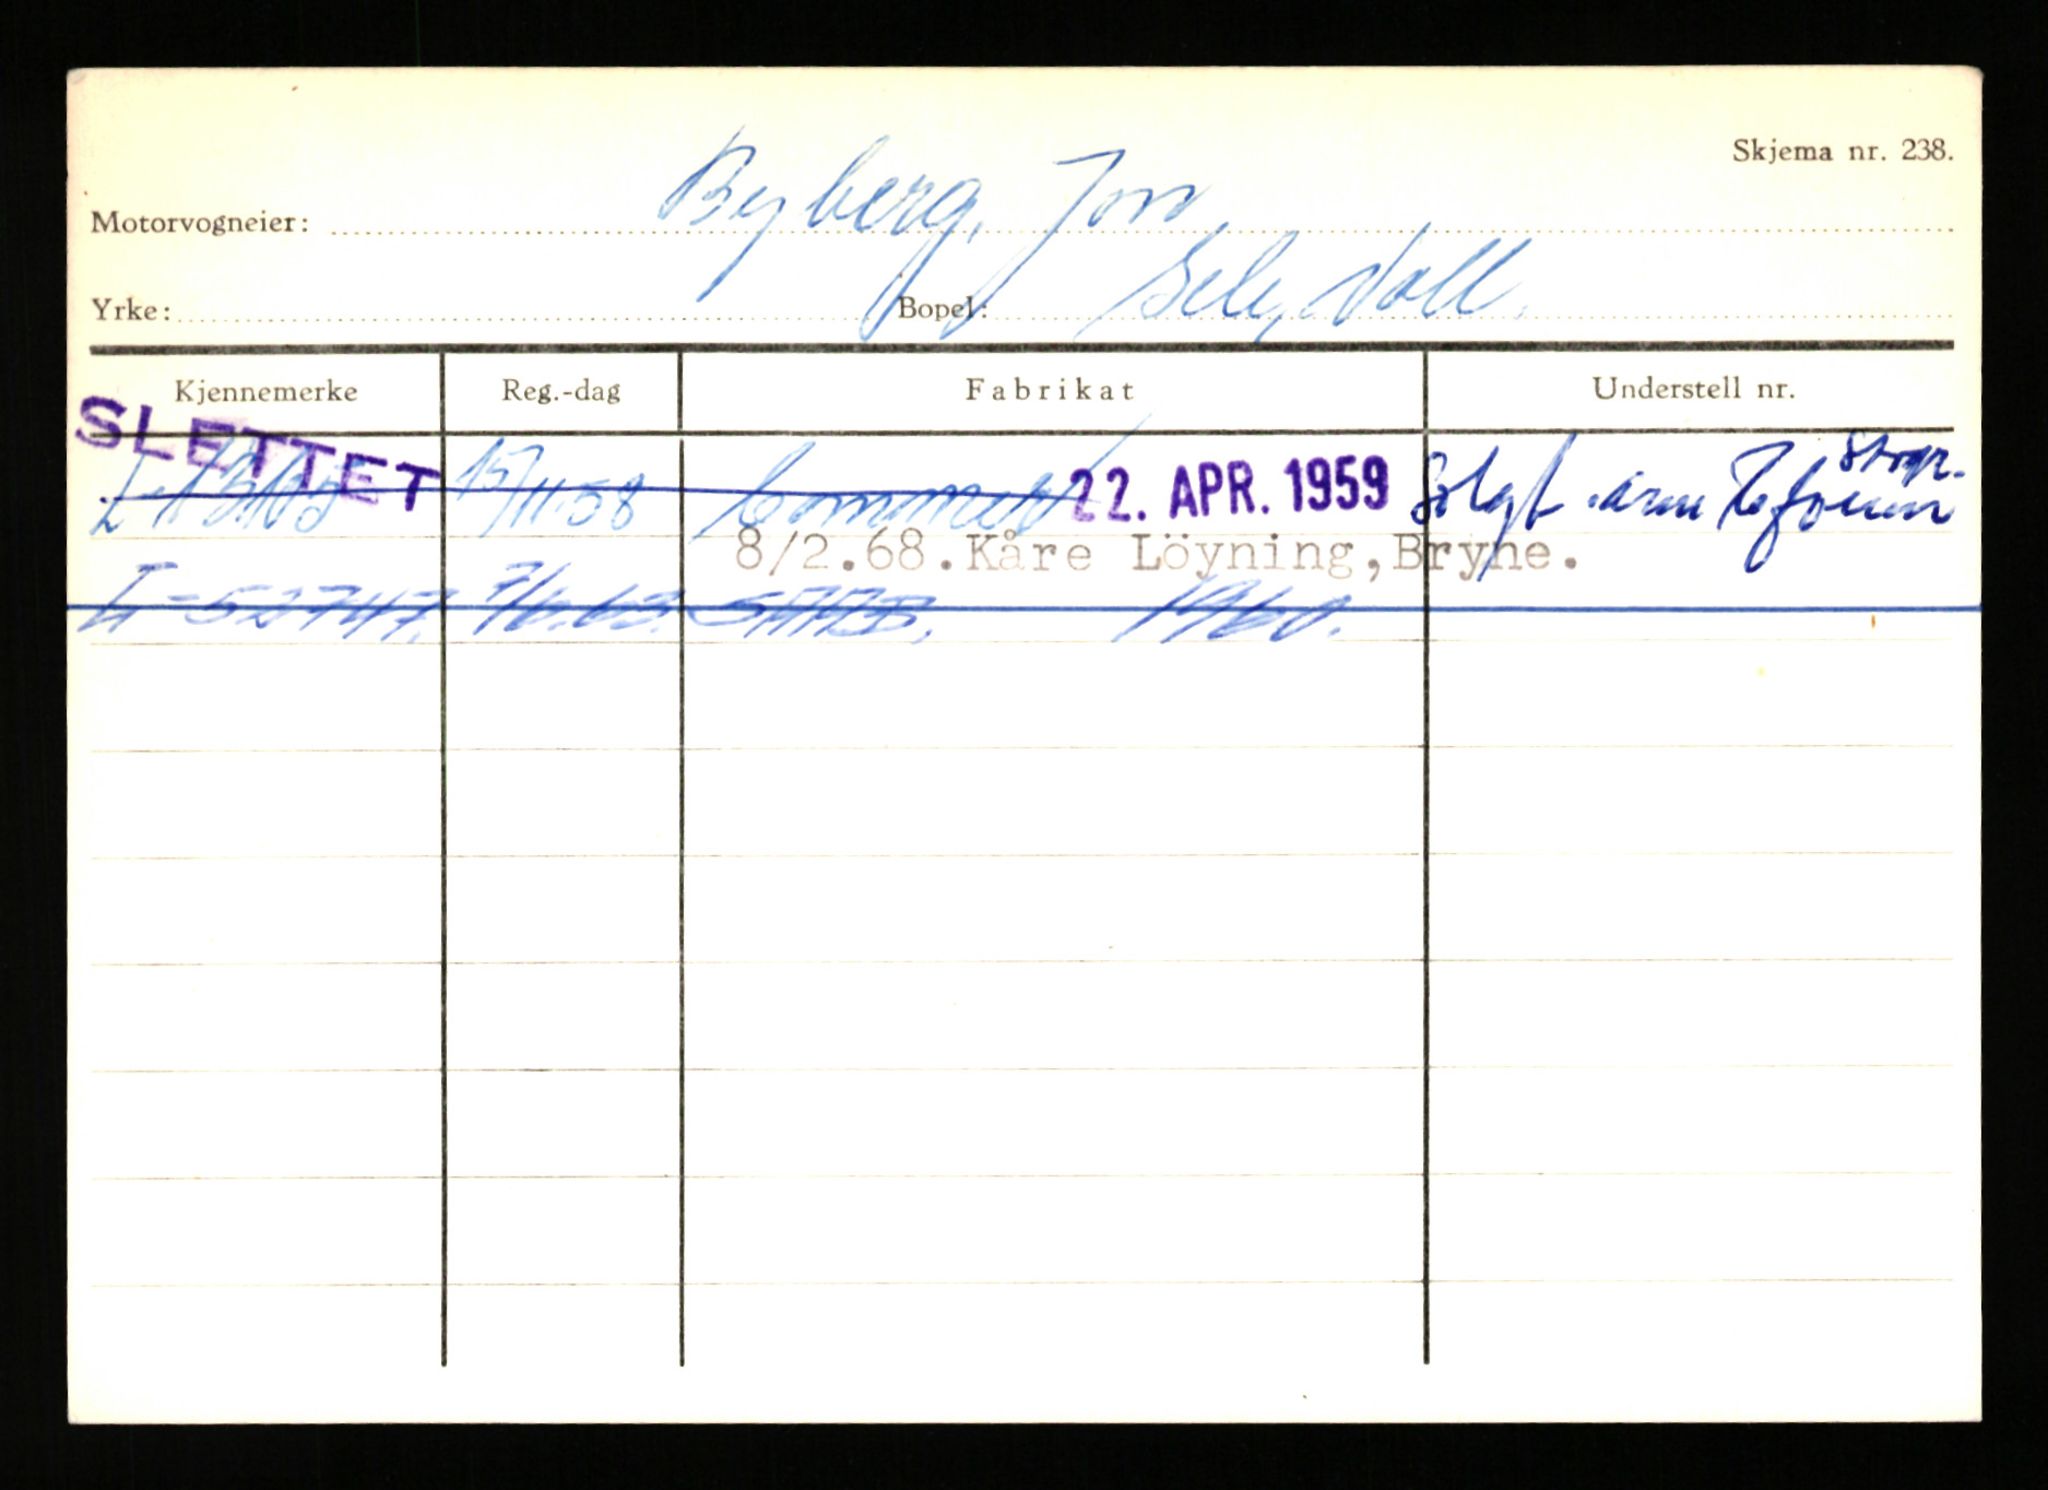 Skjema nr. 238.
Motorvogneier: Byberg, Jon
Yrke: Bopel: Sele, Voll.
Kjennemerke Reg.-dag Fabrikat Understell nr.
SLETTET
15/11.58 Commer 22. APR. 1959 Solgt
8/2.68. Kåre Löyning, Bryne.
L-52747. 7/6.63. SAAB. 1960.